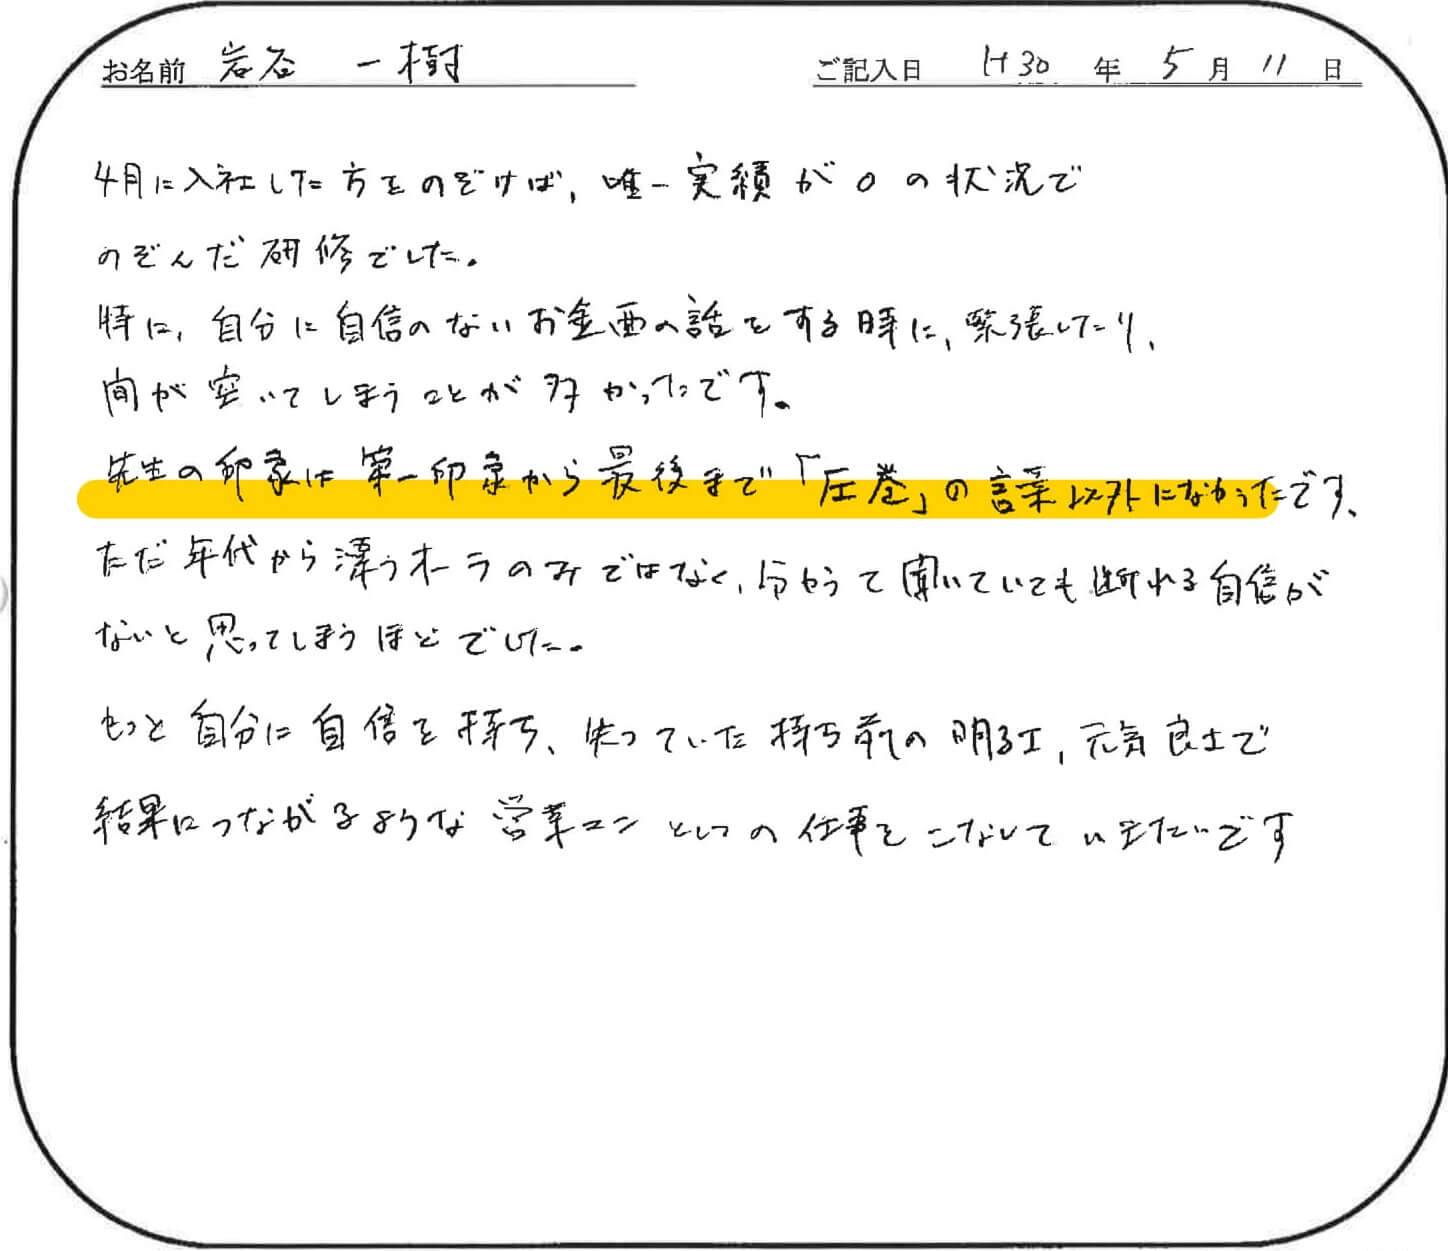 お名前 岩谷 一樹 ご記入日 H30 年 5 月 11 日
4月に入社した方をのぞけば、唯一実績が0の状況で
のぞんだ研修でした。
特に、自分に自信のないお金面の話をする時に、緊張したり、
間が空いてしまうことが多かったです。
先生の印象は第一印象から最後まで「圧巻」の言葉以外になかったです、
ただ年代から漂うオーラのみではなく、分かって聞いていても断れる自信が
ないと思ってしまうほどでした。
もっと自分に自信を持ち、失っていた持ち前の明るさ、元気良さで
結果につながるような営業マンとしての仕事をこなしていきたいです